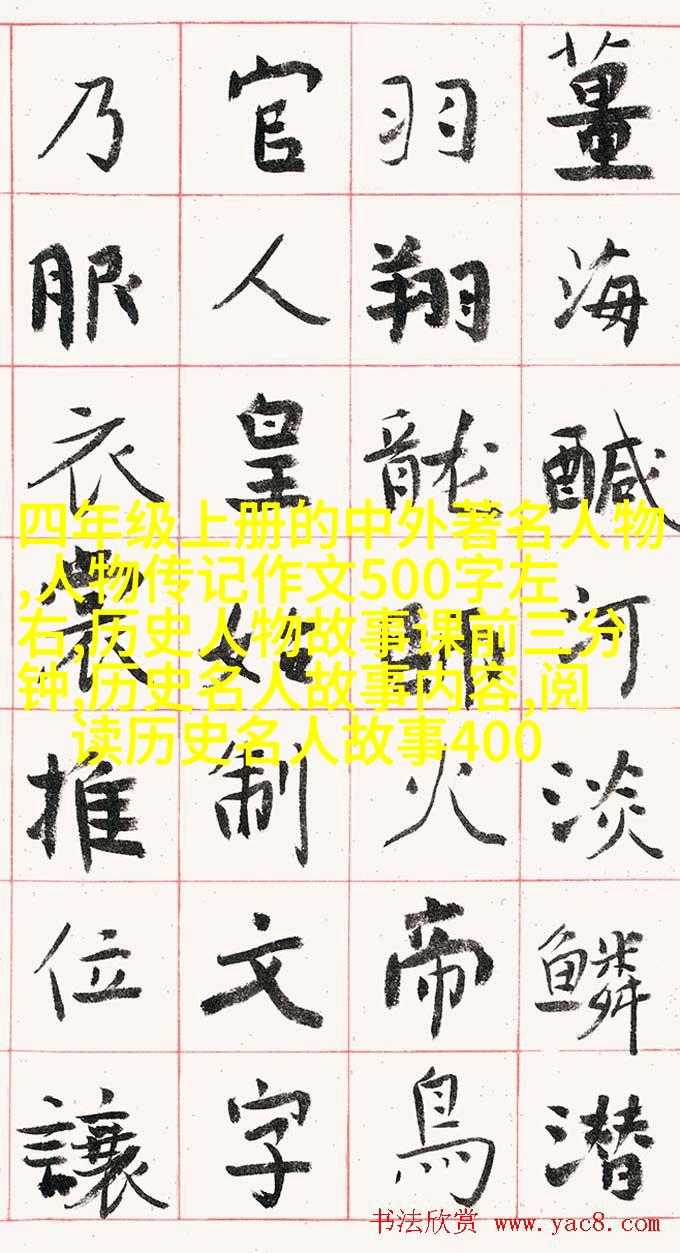 薑海醎河淡鱗潜
羽翔龍師火帝鳥
官人皇始制文字
乃服衣裳推位讓
四年级上册的中外著名人物
,人物传记作文500字左
右,历史人物故事课前三分
钟,历史名人故事内容,阅
读历史名人故事400
书法欣赏 www.yac8.com